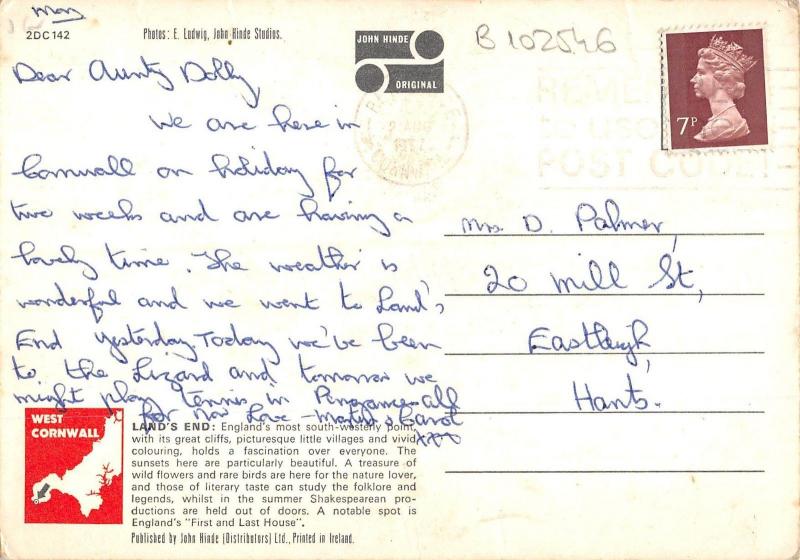 May
2DC142
Photos: E. Ludwig, John Hinde Studios.
JOHN HINDE
ORIGINAL
B 102546
7P
POST CODE
Dear Aunty Dolly,
We are here in
Cornwall on holiday for
two weeks and are having a
lovely time. The weather is
wonderful and we went to Land's
End yesterday. Today we've been
to the Lizard and tomorrow we
might play tennis in Penzance - all
for now Love - Martin & Carol
xxx
Mrs D. Palmer,
20 Mill St,
Eastleigh,
Hants.
WEST
CORNWALL
LAND'S END: England's most south-westerly point,
with its great cliffs, picturesque little villages and vivid
colouring, holds a fascination over everyone. The
sunsets here are particularly beautiful. A treasure of
wild flowers and rare birds are here for the nature lover,
and those of literary taste can study the folklore and
legends, whilst in the summer Shakespearean pro-
ductions are held out of doors. A notable spot is
England's "First and Last House".
Published by John Hinde (Distributors) Ltd., Printed in Ireland.